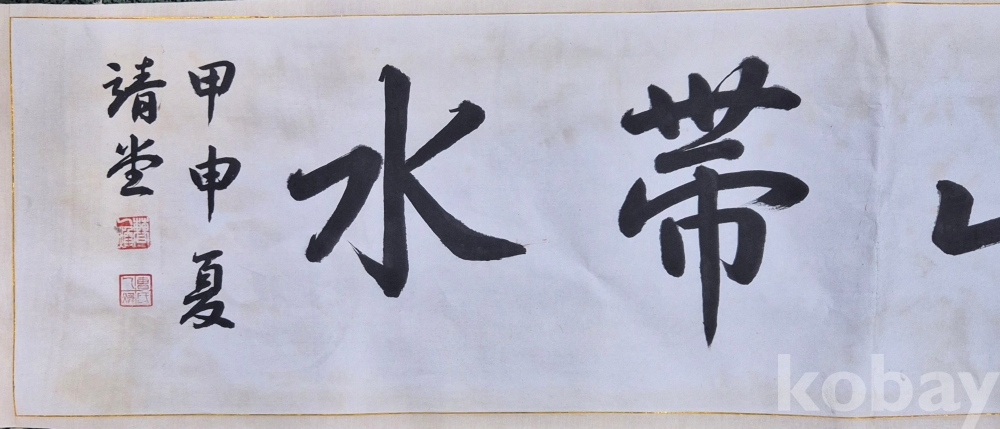 帶水
甲申夏
靖堂
kobay